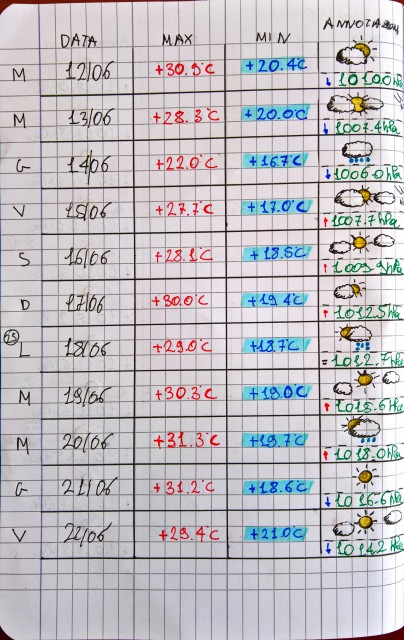 DATA MAX MIN ANNOTAZIONI
M 12/06 +30.9°C +20.4°C ↓1010.0 hPa
M 13/06 +28.3°C +20.0°C ↓1007.4 hPa
G 14/06 +22.0°C +16.7°C ↓1006.0 hPa
V 15/06 +27.7°C +17.0°C ↑1007.7 hPa
S 16/06 +28.1°C +18.5°C ↑1009.9 hPa
D 17/06 +30.0°C +19.4°C ↑1012.5 hPa
25 L 18/06 +29.0°C +18.7°C =1012.7 hPa
M 19/06 +30.3°C +19.0°C ↑1015.6 hPa
M 20/06 +31.3°C +19.7°C ↑1018.0 hPa
G 21/06 +31.2°C +18.6°C ↓1016.6 hPa
V 22/06 +29.4°C +21.0°C ↓1014.2 hPa